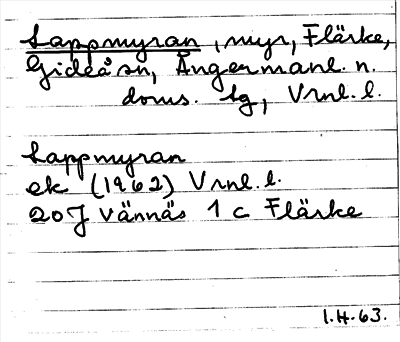 Lappmyran, myr, Flärke,
Gideå sn, Ångermanl. n.
doms. tg, Vrnl. l.
Lappmyran
ek (1962) Vrnl. l.
20J Vännäs 1 c Flärke
I.H.63.